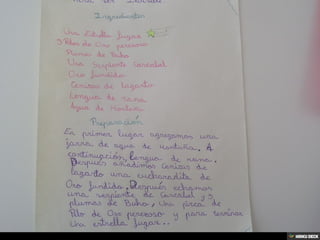 Para ser Invisible
Ingredientes
Una Estrella fugaz
3 Pelos de Oso perezoso
Plumas de Buho
Una Serpiente Cascabel
Oro fundido
Cenizas de lagarto
Lengua de rana
Agua de
Preparación
En primer lugar agregamos una
jarra de agua de . A
continuación, lengua de rana.
Después añadimos cenizas de
lagarto una cucharadita de
Oro fundido. Después echamos
una serpiente de Cascabel y 5
plumas de Buho, Una pizca de
Pelo de Oso perezoso y para terminar
Una estrella fugaz...